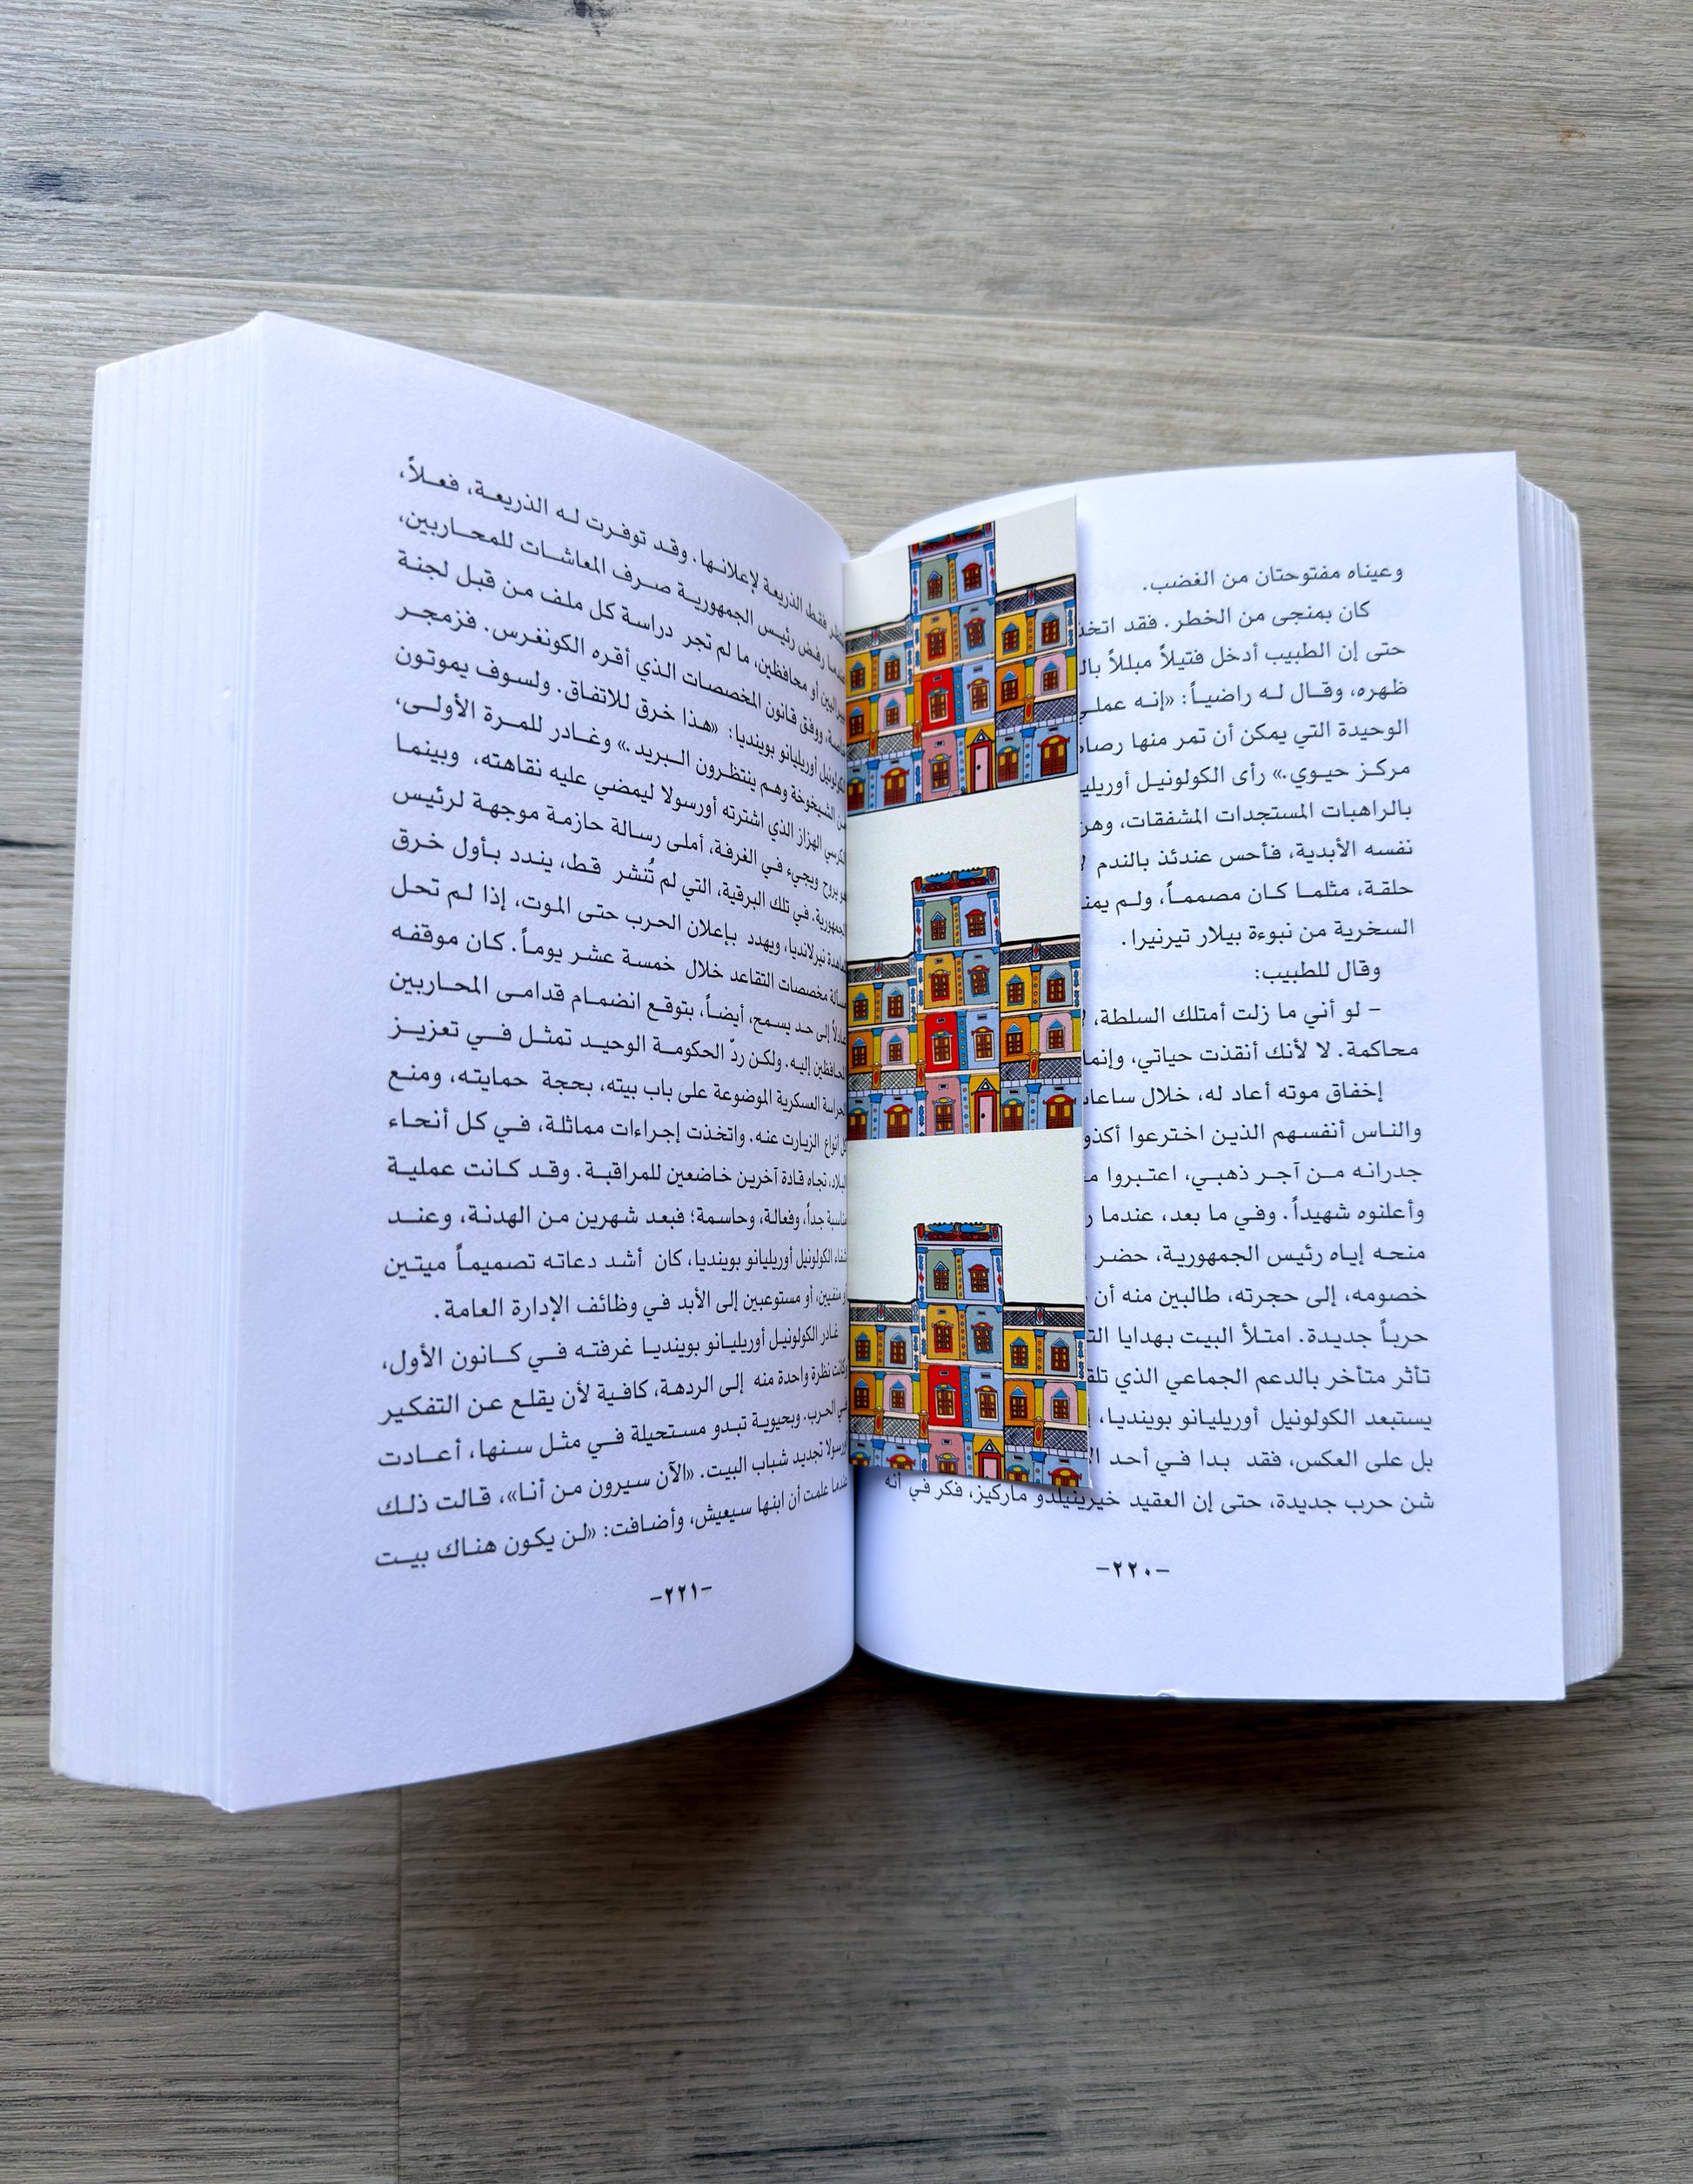 وعيناه مفتوحتان من الغضب.
كان بمنجى من الخطر. فقد اتخذ
حتى إن الطبيب أدخل فتيلاً مبللاً
ظهره، وقال له راضياً: «إنه
الوحيدة التي يمكن أن تمر منها
مركز حيوي.» رأى الكولونيل
بالراهبات المستجدات المشفقات،
نفسه الأبدية، فأحس عندئذ بالندم
حلقة، مثلما كان مصمماً، ولم
السخرية من نبوءة بيلار تيرنيرا.
وقال للطبيب:
– لو أني ما زلت أمتلك السلطة،
محاكمة. لا لأنك أنقذت حياتي، وإنما
إخفاق موته أعاد له، خلال
والناس أنفسهم الذين اخترعوا
جدرانه من آجر ذهبي، اعتبروا
وأعلنوه شهيداً. وفي ما بعد، عندما
منحه إياه رئيس الجمهورية، حضر
خصومه، إلى حجرته، طالبين منه أن
حرباً جديدة. امتلأ البيت بهدايا
تأثر متأخر بالدعم الجماعي الذي
يستبعد الكولونيل أوريليانو بوينديا،
بل على العكس، فقد بدا في أحد
شن حرب جديدة، حتى إن العقيد خيرينيلدو ماركيز، فكر في أنه
–٢٢٠–
فقط الذريعة لإعلانها. وقد توفرت له الذريعة، فعلاً،
رفض رئيس الجمهورية صرف المعاشات للمحاربين،
أو محافظين، ما لم تجر دراسة كل ملف من قبل لجنة
ووفق قانون المخصصات الذي أقره الكونغرس. فزمجر
أوريليانو بوينديا: «هذا خرق للاتفاق. ولسوف يموتون
الشيخوخة وهم ينتظرون البريد.» وغادر للمرة الأولى،
الهزاز الذي اشترته أورسولا ليمضي عليه نقاهته، وبينما
يروح ويجيء في الغرفة، أملى رسالة حازمة موجهة لرئيس
الجمهورية. في تلك البرقية، التي لم تُنشر قط، يندد بأول خرق
نيرلانديا، ويهدد بإعلان الحرب حتى الموت، إذا لم تحل
مخصصات التقاعد خلال خمسة عشر يوماً. كان موقفه
إلى حد يسمح، أيضاً، بتوقع انضمام قدامى المحاربين
إليه. ولكن ردّ الحكومة الوحيد تمثل في تعزيز
العسكرية الموضوعة على باب بيته، بحجة حمايته، ومنع
أنواع الزيارت عنه. واتخذت إجراءات مماثلة، في كل أنحاء
البلاد، تجاه قادة آخرين خاضعين للمراقبة. وقد كانت عملية
مناسبة جداً، وفعالة، وحاسمة؛ فبعد شهرين من الهدنة، وعند
شفاء الكولونيل أوريليانو بوينديا، كان أشد دعاته تصميماً ميتين
أو منفيين، أو مستوعبين إلى الأبد في وظائف الإدارة العامة.
غادر الكولونيل أوريليانو بوينديا غرفته في كانون الأول،
وكانت نظرة واحدة منه إلى الردهة، كافية لأن يقلع عن التفكير
في الحرب. وبحيوية تبدو مستحيلة في مثل سنها، أعادت
أورسولا تجديد شباب البيت. «الآن سيرون من أنا»، قالت ذلك
عندما علمت أن ابنها سيعيش، وأضافت: «لن يكون هناك بيت
–٢٢١–